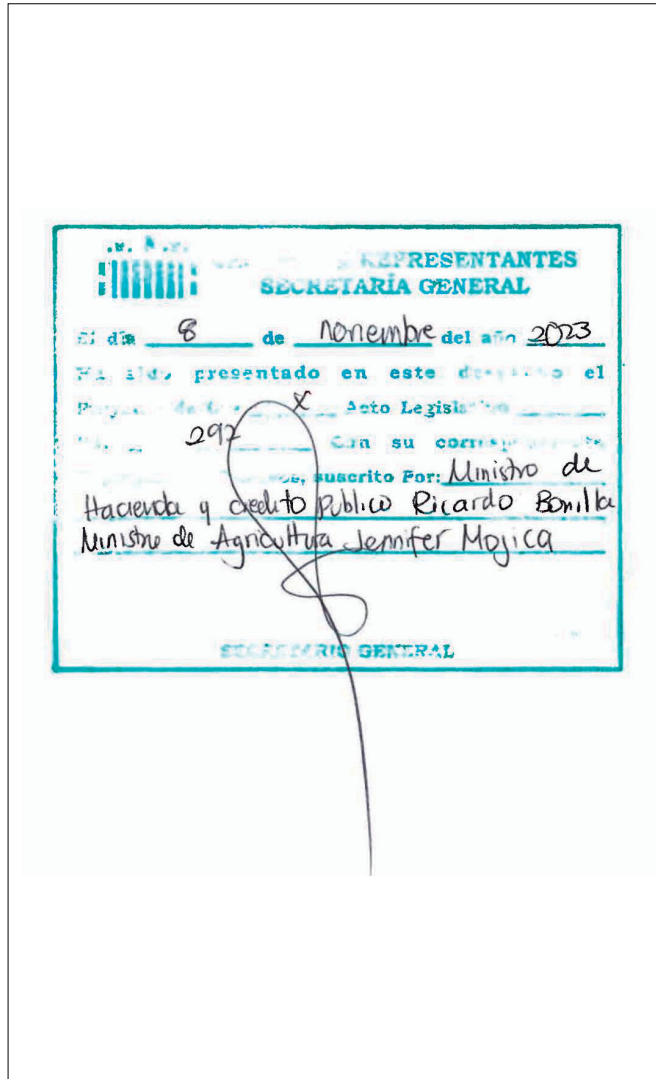 REPRESENTANTES
SECRETARÍA GENERAL
El día 8 de noviembre del año 2023
presentado en este el
X Acto Legislativo
297 Con su
suscrito Por: Ministro de
Hacienda y credito Público Ricardo Bonilla
Ministra de Agricultura Jennifer Mojica
SECRETARIO GENERAL